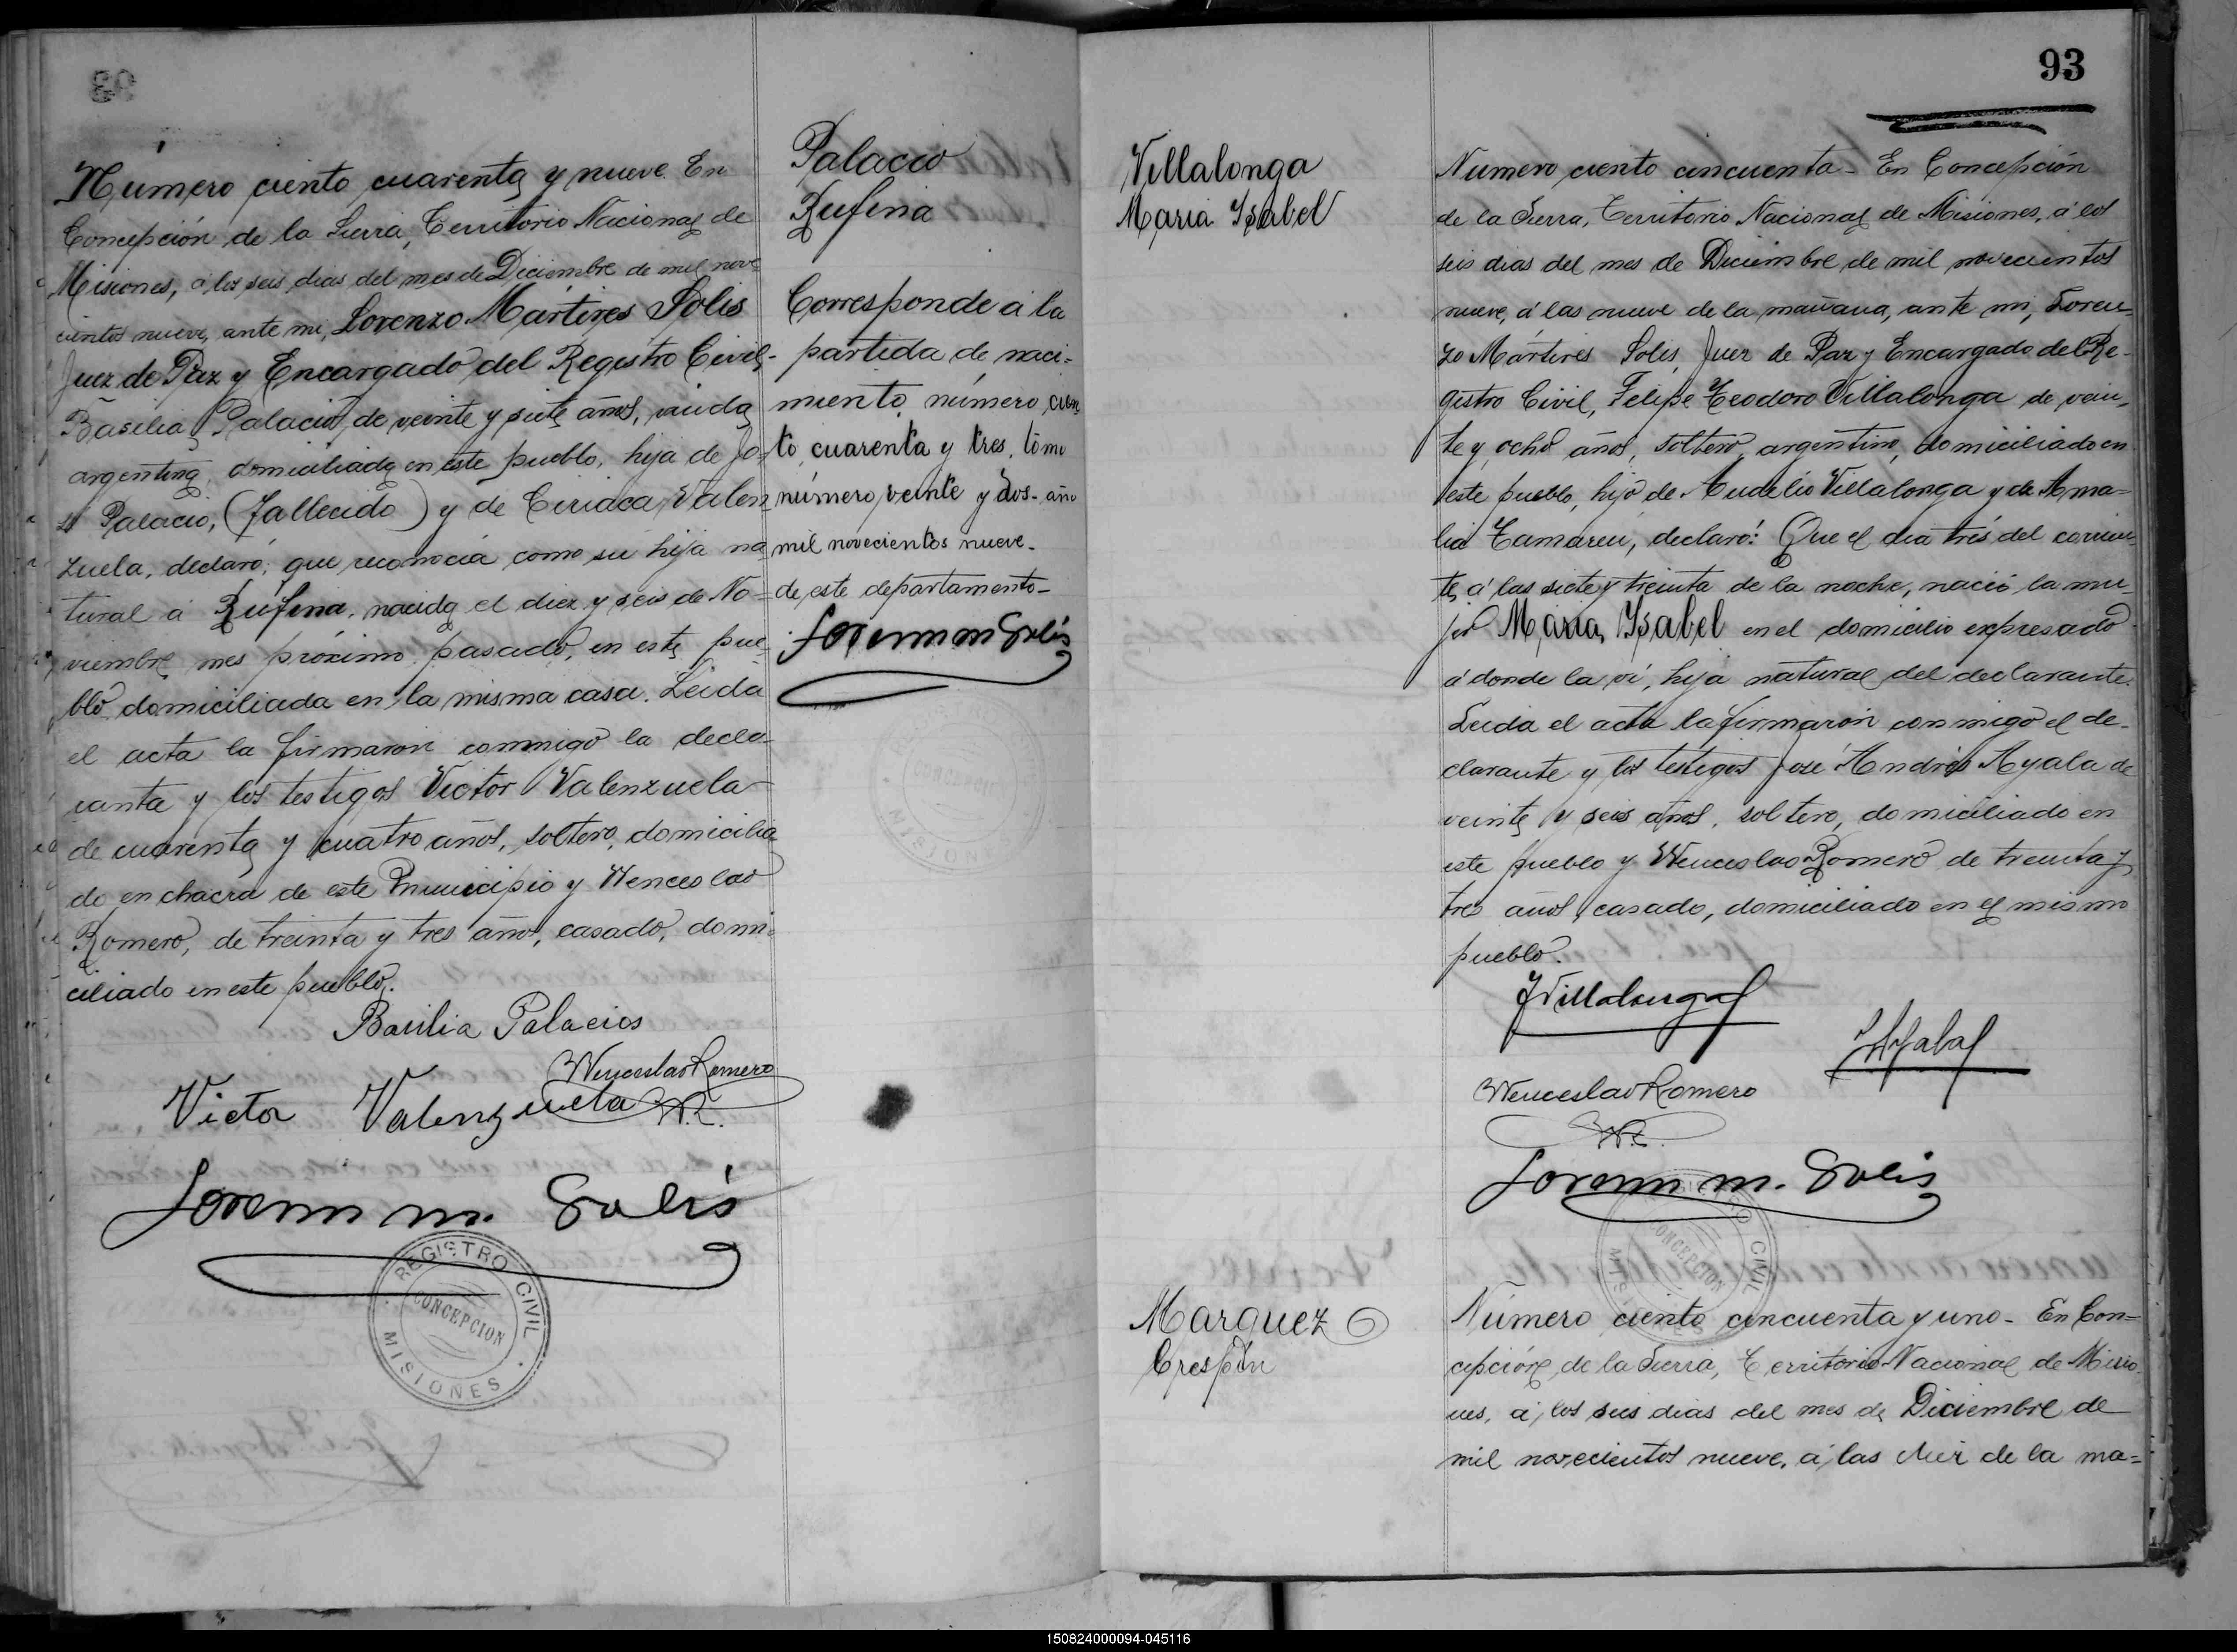 Número ciento cuarenta y nueve. En
Concepción de la Sierra, Territorio Nacional de
Misiones, á los seis dias del mes de Diciembre de mil nove
cientos nueve, ante mi, Lorenzo Mártires Solis
Juez de Paz y Encargado del Registro Civil,
Basilia Palacio, de veinte y siete años, viuda
argentina, domiciliada en este pueblo, hija de Jo-
sé Palacio, (fallecido) y de Ciriaca Valen
zuela, declaró; que reconocía como su hija na
tural á Rufina, nacida el diez y seis de No-
viembre mes próximo pasado, en este pue
blo domiciliada en la misma casa. Leida
el acta la firmaron conmigo la decla-
ranta y los testigos Victor Valenzuela
de cuarenta y cuatro años, soltero, domicilia
do en chacra de este municipio y Wenceslao
Romero, de treinta y tres años, casado, domi-
ciliado en este pueblo.
Basilia Palacios
Wenceslao Romero
W.R.
Victor Valenzuela
Lorenzo M. Solis
REGISTRO CIVIL
CONCEPCION
MISIONES
Palacio
Rufina
Corresponde á la
partida de naci-
miento número cien
to cuarenta y tres, tomo
número veinte y dos- año
mil novecientos nueve-
de este departamento-
Lorenzo M Solis
CONCEPCION
MISIONES
93
Villalonga
Maria Ysabel
Número ciento cincuenta- En Concepción
de la Sierra, Territorio Nacional de Misiones, á los
seis dias del mes de Diciembre de mil novecientos
nueve, á las nueve de la mañana, ante mi, Loren-
zo Mártires Solis, Juez de Paz y Encargado del Re-
gistro Civil, Felipe Teodoro Villalonga de vein-
te y ocho años, soltero, argentino, domiciliado en
este pueblo, hijo de Audelio Villalonga y de Ama-
lia Tamareu, declaró: Que el dia trés del corrien-
te, á las siete y treinta de la noche, nació la mu-
jer Maria Ysabel en el domicilio expresado
á donde la ví, hija natural del declarante.
Leida el acta la firmaron conmigo el de-
clarante y los testigos José Andrés Ayala de
veinte y seis años, soltero, domiciliado en
este pueblo y Wenceslao Romero de treinta y
tres años, casado, domiciliado en el mismo
pueblo.
Villalonga
Wenceslao Romero
W.R.
Lorenzo M. Solis
REGISTRO CIVIL
CONCEPCION
MISIONES
Marquez
Crespin
Número ciento cincuenta y uno- En Con-
cepción de la Sierra, Territorio Nacional de Misio
nes, á los seis dias del mes de Diciembre de
mil novecientos nueve, á las diez de la ma-
150824000094-045116